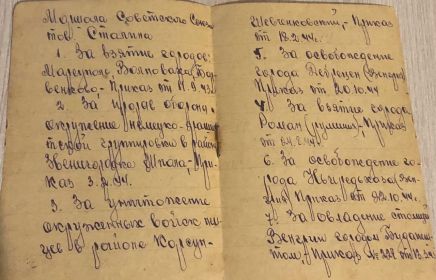 Маршала Советского Союза
тов. Сталина
1. За взятие городов:
Мариуполь, Волноваха
Приказ от 11.9.43
2. За прорыв обороны
окружение немецко-
группировки в районе
Звенигородка Шпола, При-
каз 3.2.44.
3. За уничтожение
окруженных войск нем
цев в районе Корсун-
Шевченковский, - Приказ
от 18.2.44.
5. За освобождение
города Дебрецен (Венгрия)
Приказ от 20.10.44
4. За взятие города
Роман (Румыния) - Приказ
от
6. За освобождение го-
рода Ньиредьхаза (Вен-
грия) Приказ от 22.10.44
7. За овладение столицей
Венгрии городом Будапеш-
том, Приказ №